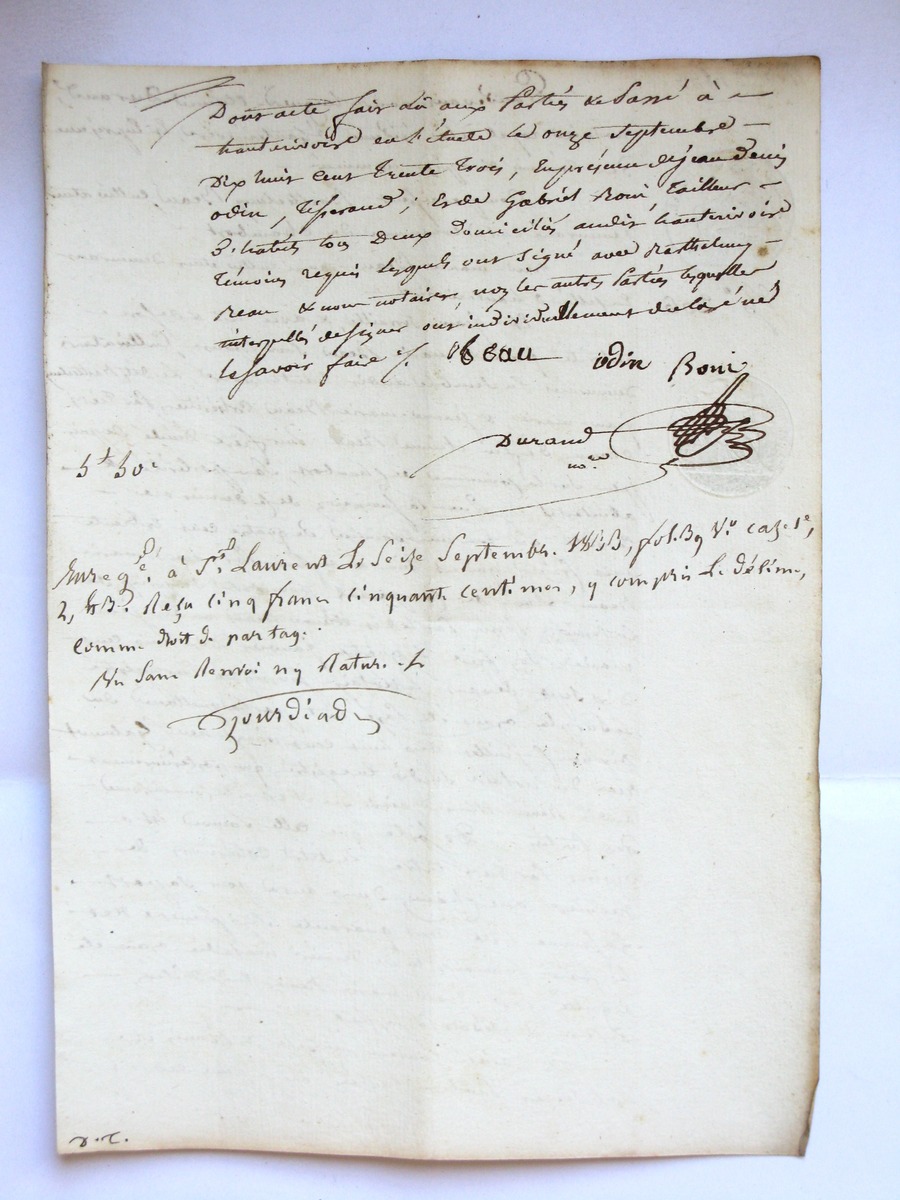 Dont acte fait lû aux Parties & Passé à
hauterivoire en l'étude le onze septembre
Dix huit Cent Trente Trois, En présence de jean denis
odin, Tisserand; Et de Gabriel Roni, Tailleur
D'habits tous Deux Domiciliés audit hauterivoire
Témoins requis lesquels ont Signé avec Barthelemy
Beau & nous notaire, non les autres Parties lesquelles
interpellés de signer ont individuellement déclaré ne
le savoir faire /.
Beau odin Roni
Durand
no.re
5f 50c
Enreg.é à St. Laurent Le Seize Septembr. 1833, fol. 39 V.o case 1e,
2, & 3. Reçu cinq francs cinquante centimes, y compris Le décime,
comme droit de partage.
Vu Sans Renvoi ny Rature. /.
Jourdiad